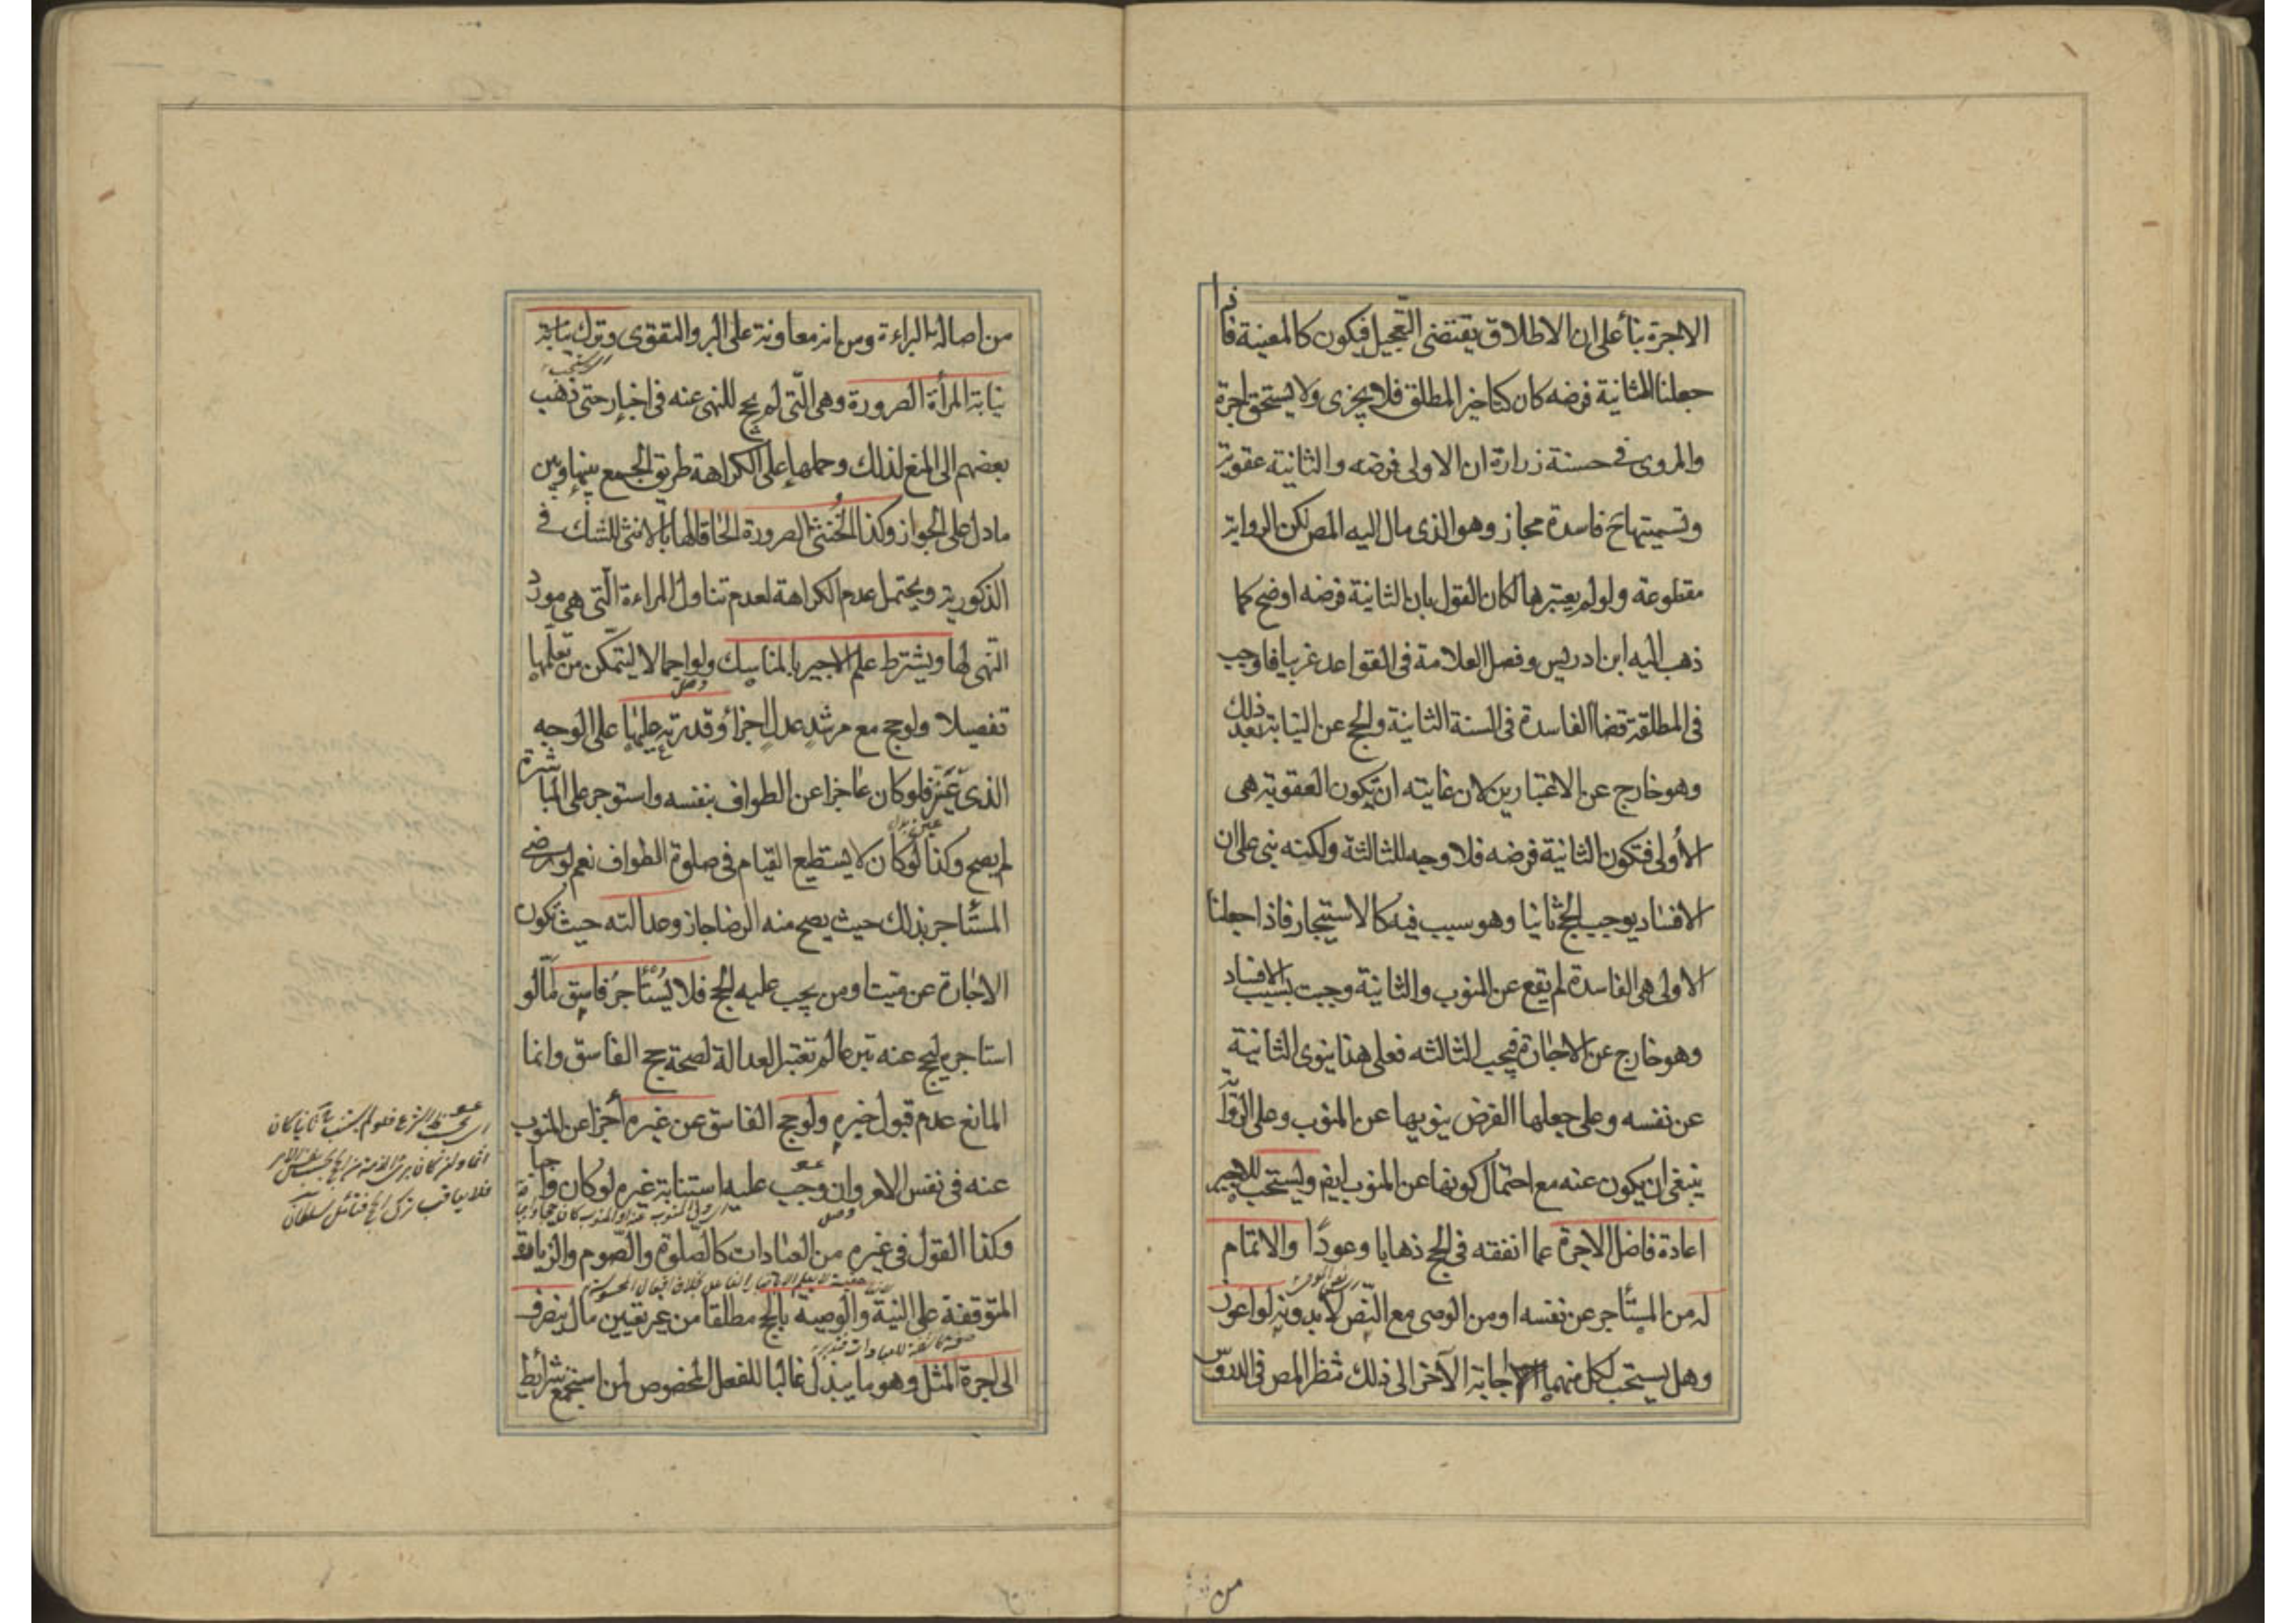 الاجرة بنأ على ان الاطلاق يقتضى التعجيل فيكون كالمعينة فاذا
جعلنا الثانية فرضه كان كتاخير المطلق فلا يجزى ولا يستحق اجرة
والمروى فى حسنة زرارة ان الاولى فرضه والثانية عقوبة
وتسميتها ح فاسدة مجاز وهو الذى مال اليه المص لكن الرواية
مقطوعة ولو لم يعتبرها لكان القول بان الثانية فرضه اوضح كما
ذهب اليه ابن ادريس وفصل العلامة فى القواعد غريبا فاوجب
فى المطلقة قضا الفاسدة فى السنة الثانية والحج عن النيابة بعد ذلك
وهو خارج عن الاعتبارين لان غايته ان تكون العقوبة هى
الأولى فتكون الثانية فرضه فلا وجه للثالثة ولكنه بنى على ان
الافساد يوجب الحج ثانيا وهو سبب فيه كالاستيجار فاذا جعلنا
الاولى هى الفاسدة لم يقع عن المنوب والثانية وجبت بسبب الافساد
وهو خارج عن الاجارة فيجب الثالثه فعلى هذا ينوى الثانية
عن نفسه وعلى جعلها الفرض ينويها عن المنوب وعلى الرواية
ينبغى ان يكون عنه مع احتمال كونها عن المنوب ايضا ويستحب للاجير
اعادة فاضل الاجرة عما انفقه فى الحج ذهابا وعودًا والاتمام
له من المستأجر عن نفسه او من الوصى مع النص لا بدونه لو اعوز
وهل يستحب لكل منهما اجابة الآخر الى ذلك تنظر المص فى الدروس
من
من اصالة البراءة ومن انه معاونة على البر والتقوى وترك نيابة
نيابة المرأة الصرورة وهى التى لم تحج للنهى عنه فى اخبار حتى ذهب
بعضهم الى المنع لذلك وحملها على الكراهة طريق الجمع بينها وبين
ما دل على الجواز وكذا الخُنثى الصرورة الحاقا لها بالانثى للشك فى
الذكورية ويحتمل عدم الكراهة لعدم تناول المراءة التى هى مورد
النهى لها ويشترط علم الاجير بالمناسك ولو اجمالا ليتمكن من تعلمها
تفصيلا ولو حج مع مرشد عدل اجزأ وقدرته عليها على الوجه
الذى عين فلو كان عاجزا عن الطواف بنفسه واستوجر على المباشرة
لم يصح وكذا لو كان لا يستطيع القيام فى صلوة الطواف نعم لو رضى
المستأجر بذلك حيث يصح منه الرضا جاز وعدالته حيث تكون
الاجارة عن ميت او من يجب عليه الحج فلا يُستأجر فاسق امّا لو
استاجره ليحج عنه تبرعا لم تعتبر العدالة لصحة حج الفاسق وانما
المانع عدم قبول خبره ولو حج الفاسق عن غيره أجزأ عن المنوب
عنه فى نفس الامر وان وجب عليه استنابة غيره لو كان واجبا
وكذا القول فى غيره من العبادات كالصلوة والصوم والزيارة
المتوقفة على النية والوصية بالحج مطلقا من غير تعيين مال ينصرف
الى اجرة المثل وهو ما يبذل غالبا للفعل المخصوص لمن استجمع شرائط